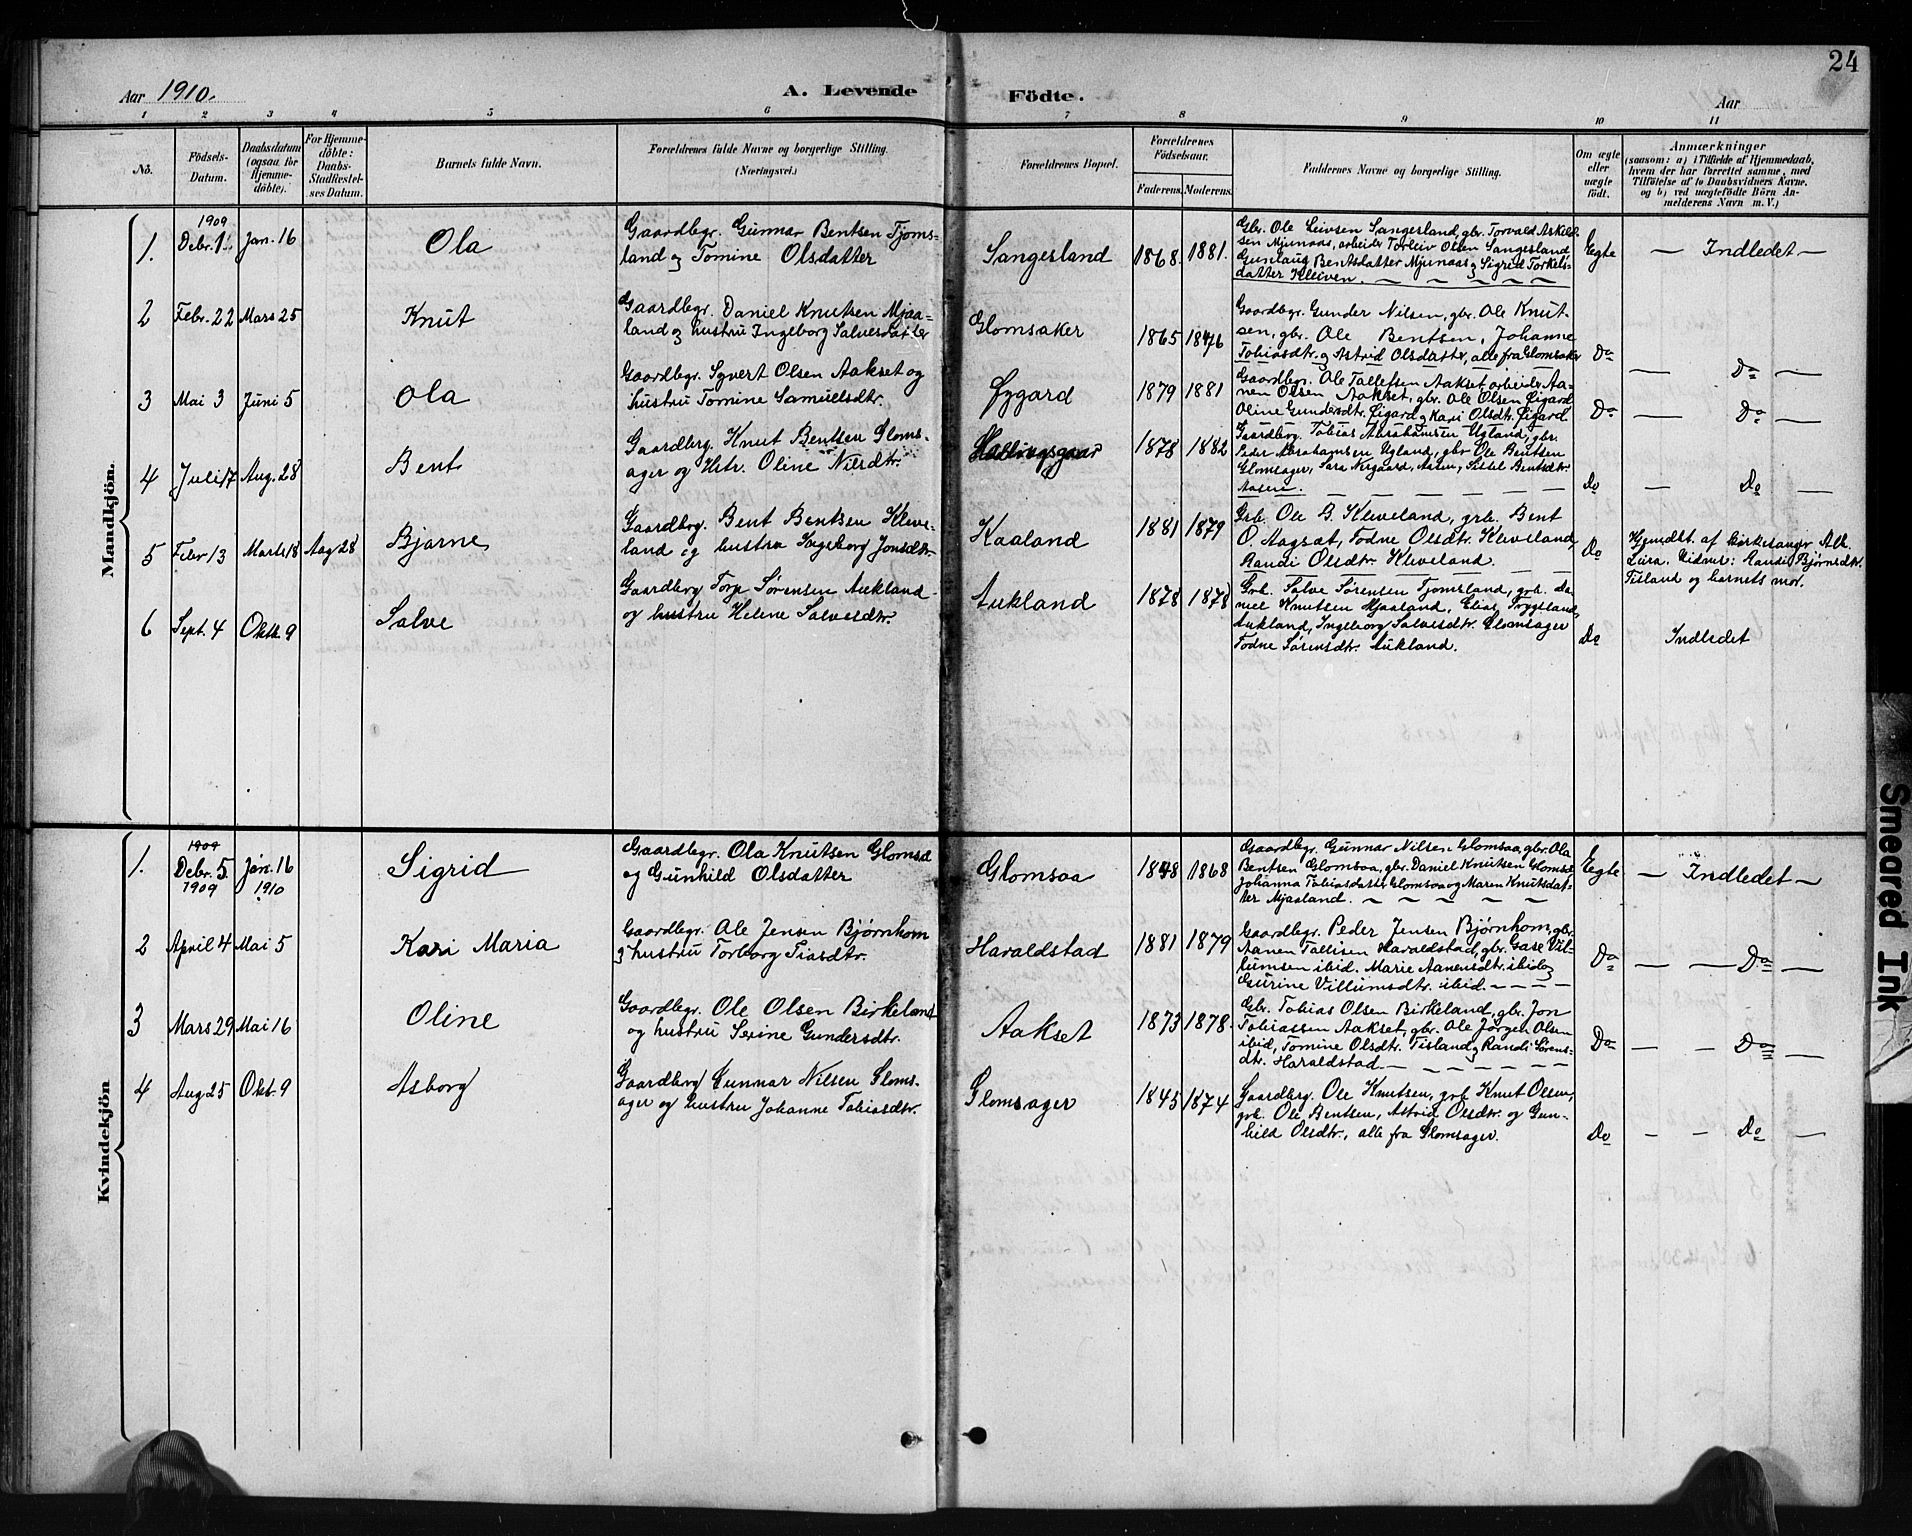 24
Aar 1910.
A. Levende
Födte.
Aar
1 2 3 4 5 6 7 8 9 10 11
No.
Födsels-
Datum.
Daabsdatum
(ogsaa for
Hjemme-
döbte).
For Hjemme-
döbte:
Daabs-
Stadfæstel-
ses Datum.
Barnets fulde Navn.
Forældrenes fulde Navne og borgerlige Stilling.
(Næringsvei.)
Forældrenes Bopæl.
Forældrenes
Födselsaar.
Faderens.
Moderens.
Faddernes Navne og borgerlige Stilling.
Om ægte
eller
uægte
födt.
Anmærkninger
(saasom: a) i Tilfælde af Hjemmedaab,
hvem der har forrettet samme, med
Tilföielse af to Daabsvidners Navne,
og b) ved uægtefödte Börn An-
melderens Navn m. V.)
Mandkjön.
1.
1909
Debr. 1.
Jan. 16
Ola
Gaardbgr. Gunnar Bentsen Tjoms-
land og Tomine Olsdatter
Sangesland
1868.
1881.
Gbr. Ole Leivsen Sangesland, gbr. Torvald Askild-
sen Mjunaas, arbeider Torleiv Olsen Sangesland
Gunlaug Bentsdatter Mjunaas og Sigrid Torkels-
datter Kleiven.
Ægte
— Indledet —
2
Febr. 22
Mars 25
Knut
Gaardbgr. Daniel Knutsen Mjaa-
land og hustru Ingeborg Salvesdatter
Glomsaker
1865
1876
Gaardbgr. Gunder Nilsen, gbr. Ole Knut-
sen, gbr. Ole Bentsen, Johanne
Tobiasdtr. og Astrid Olsdatter, alle fra Glomsaker
Do
— Do —
3
Mai 3
Juni 5
Ola
Gaardbgr. Syvert Olsen Aakset og
hustru Tomine Samuelsdtr.
Øygard
1879
1881
Gaardbgr. Ole Tallefsen Aakset, arbeider Aa-
nen Olsen Aakset, gbr. Ole Olsen Øigard
Oline Gundersdtr. Øigard og Kari Olsdtr. Øigard
Do
— Do —
4
Juli 17
Aug. 28
Bent
Gaardberg. Knut Bentsen Gloms-
ager og Hstr. Oline Nilsdtr.
1878
1882
Gaardbrg. Tobias Abrahamsen Ugland, gbr.
Peder Abrahamsen Ugland, gbr Ole Bentsen
Glomsager, Sara Nergaard, Aasen, Sissel Bentsdtr.
Aasen.
Do
— Do —
5
Febr 13
Marts 18
Aug 28
Bjarne
Gaardbrg. Bent Bentsen Kleve-
land og hustru Ingeborg Jonsdtr
Kaaland
1881
1879
Grb. Ole B. Kleveland, grb. Bent
O Aagsæt, Todne Olsdtr. Kleveland,
Randi Olsdtr. Kleveland.
Do
Hjemdbt. af kirkesanger Alb.
Lura. Vidner: Randi Bjørnsdtr.
Tisland og barnets mor.
6
Sept. 4
Oktb. 9
Salve
Gaardberg Torje Sørensen Aukland
og hustru Helene Salvesdtr.
Aukland
1878
1878
Grb. Salve Sørensen Tjomsland, grb. Da-
niel Knutsen Mjaaland, Elias Trygsland,
Aukland, Ingeborg Salvesdtr. Glomsager
Todne Sørensdtr. Aukland.
Do
Indledet
Kvindekjön
1.
1909
Debr. 5
1909
Jan. 16
1910
Sigrid
Gaardbgr. Ola Knutsen Glomsa
og Gunhild Olsdatter
Glomsaa
1848
1868
Gaardbgr. Gunnar Nilsen Glomsaa, gbr. Ola
Bentsen Glomsaa, gbr. Daniel Knutsen Glomsa
Johanna Tobiasdatter Glomsaa og Maren Knutsdat-
ter Mjaaland.
Ægte
— Indledet —
2
April 4
Mai 5
Kari Maria
Gaardbegr. Ole Jensen Bjørnhom
og hustru Torborg Tiasdtr.
Haraldstad
1881
1879
Gaardbegr. Peder Jensen Bjørnhom, gbr.
Aanen Tallisen Haraldstad, gbr. Gase Vil-
lumsen ibid. Marie Aanensdtr. ibid og
Gurine Villumsdtr. ibid.
Do
— — Do —
3
Mars 29
Mai 16
Oline
Gaardbegr. Ole Olsen Birkeland
og hustru Serine Gundersdtr.
Aakset
1873
1878.
Gbr. Tobias Olsen Birkeland, gbr. Jon
Tobiassen Aakset, gbr. Ole Jørgen Olsen
ibid, Tomine Olsdtr. Tisland og Randi Sørens-
dtr. Haraldstad
Do
— — Do —
4
Aug 25
Okt. 9
Asborg
Gaardberg Gunnar Nilsen Gloms-
ager og hustru Johanne Tobiasdtr.
Glomsager
1845
1874
Gaardberg. Ole Knutsen, grb Knut Olsen,
grb. Ole Bentsen, Astrid Olsdtr. og Gun-
hild Olsdtr., alle fra Glomsager.
Do
— — Do —
Smeared Ink